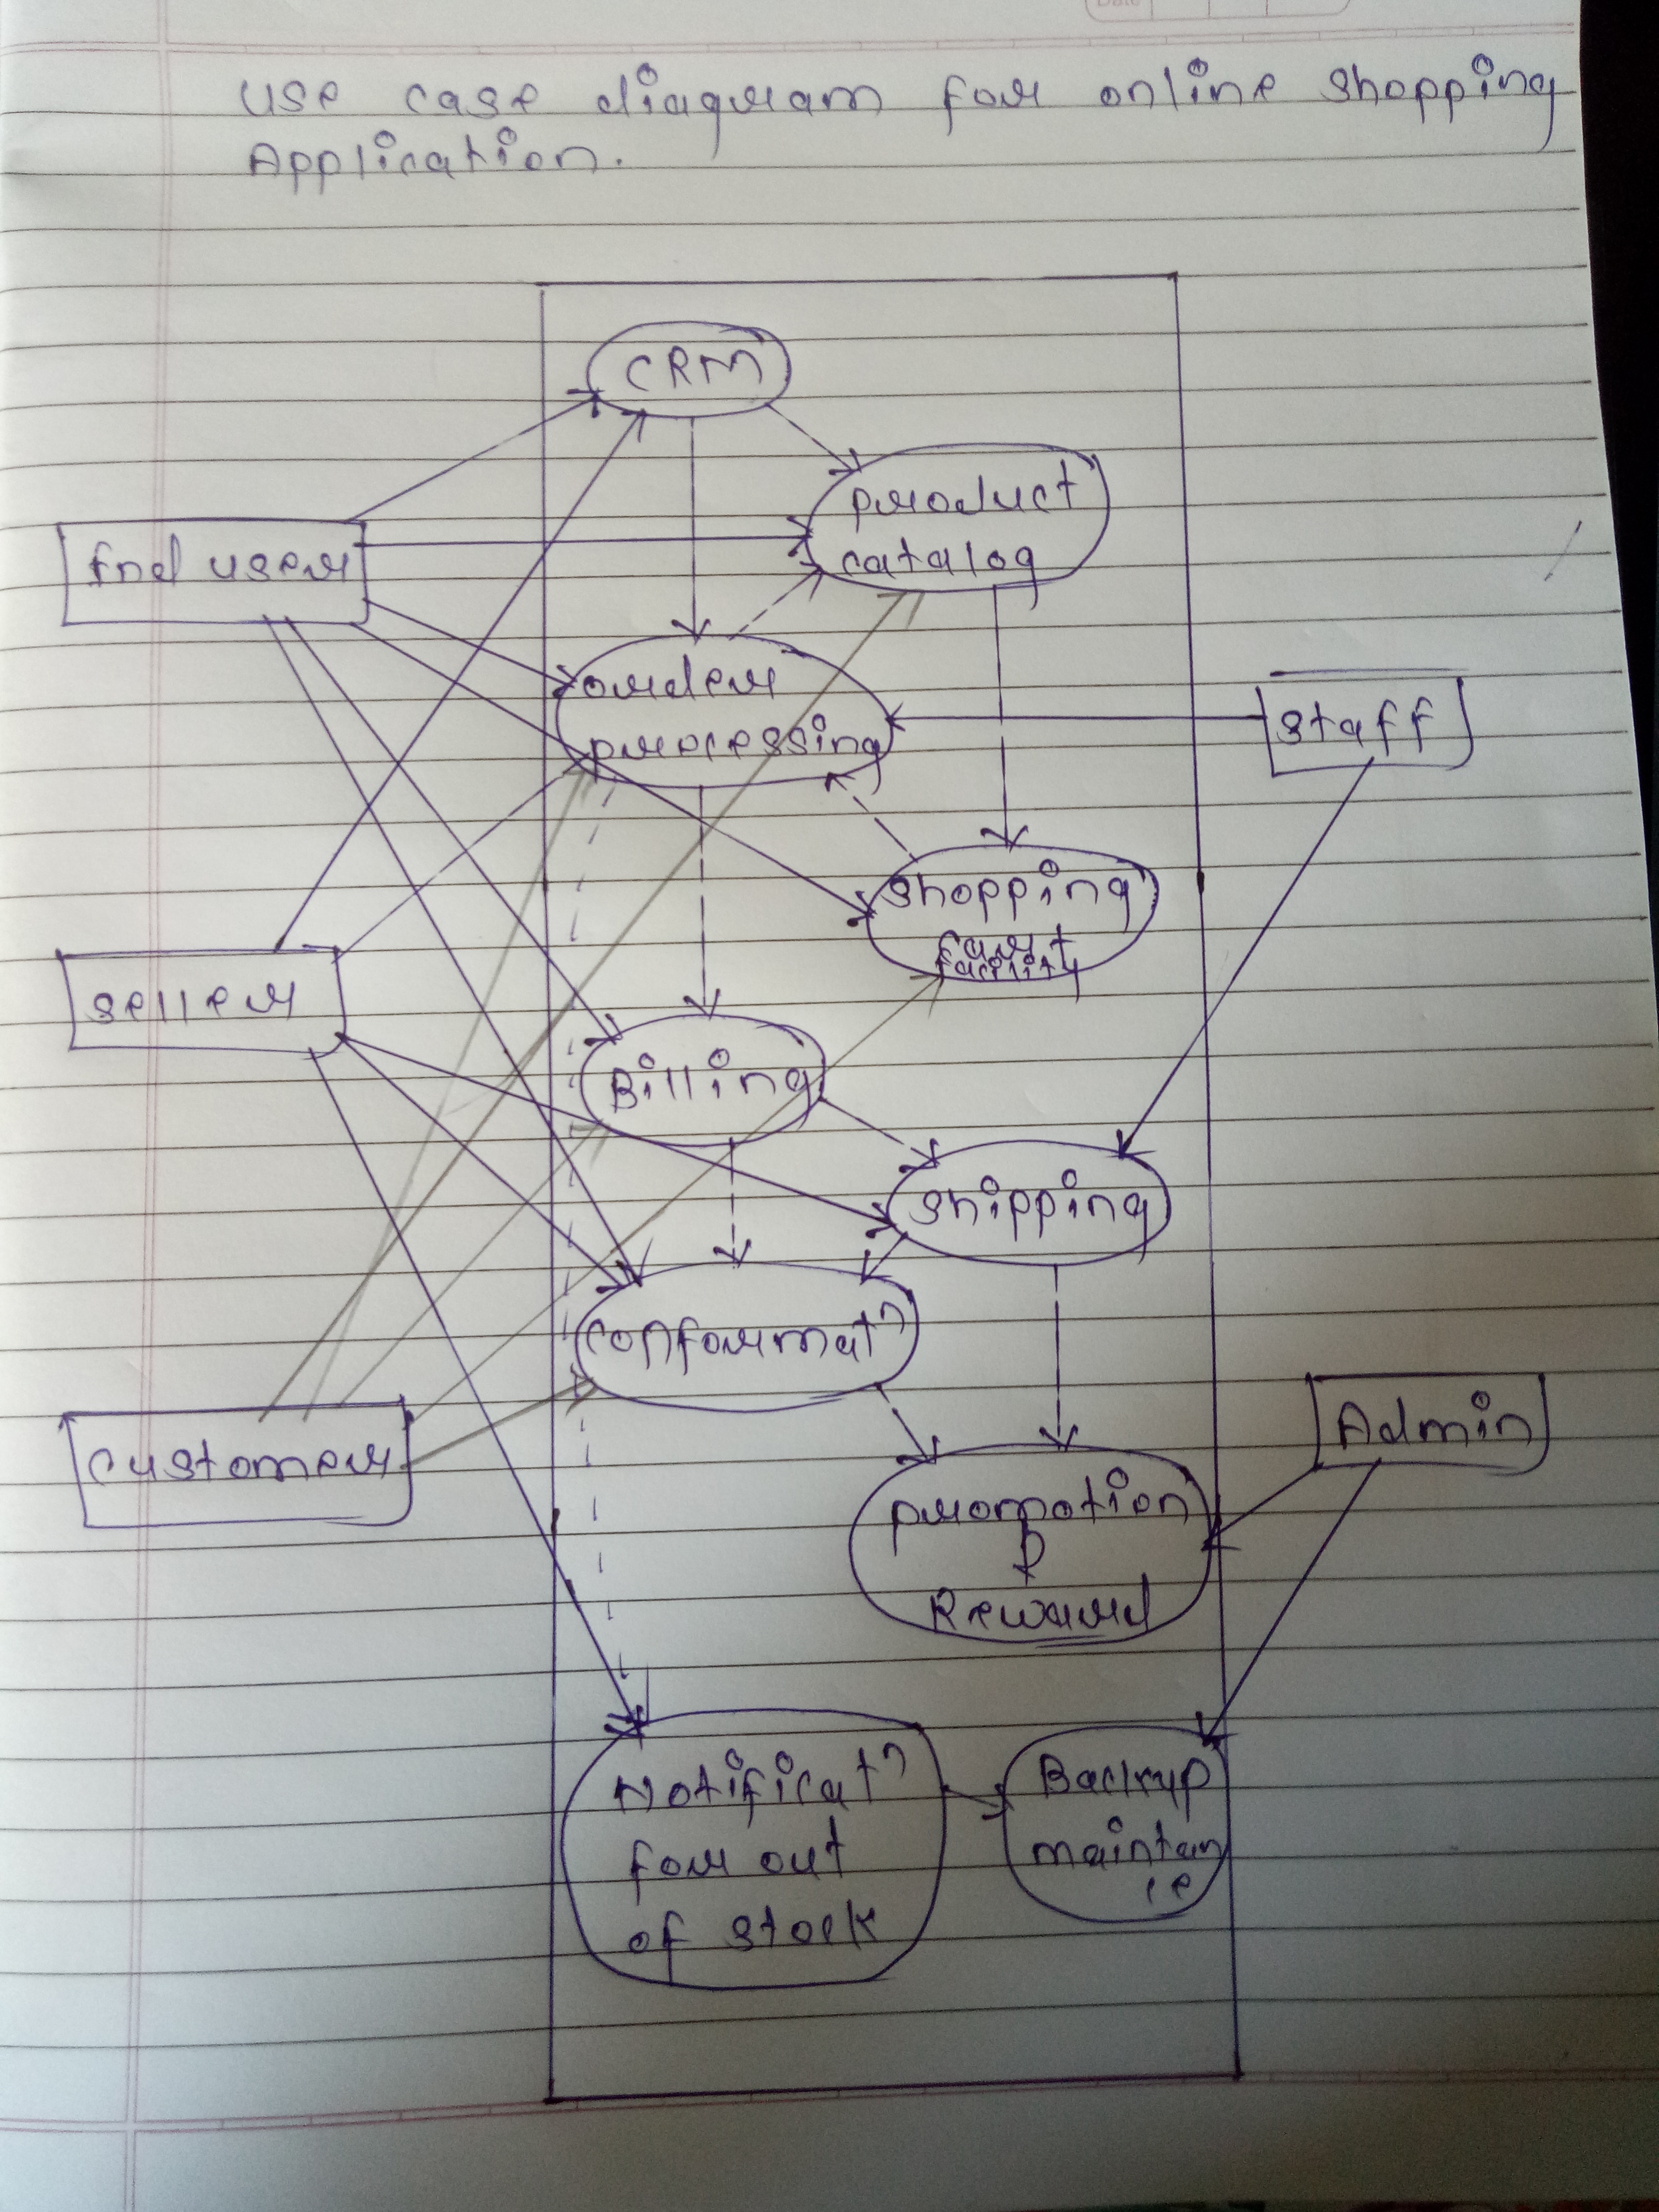 Date
Use case diagram for online shopping
Application.
CRM
product
catalog
End user
order
processing
staff
shopping
cart
facility
seller
Billing
shipping
conformatn
customer
Admin
promotion
&
Reward
Notificatn
for out
of stock
Backup
maintan
ce